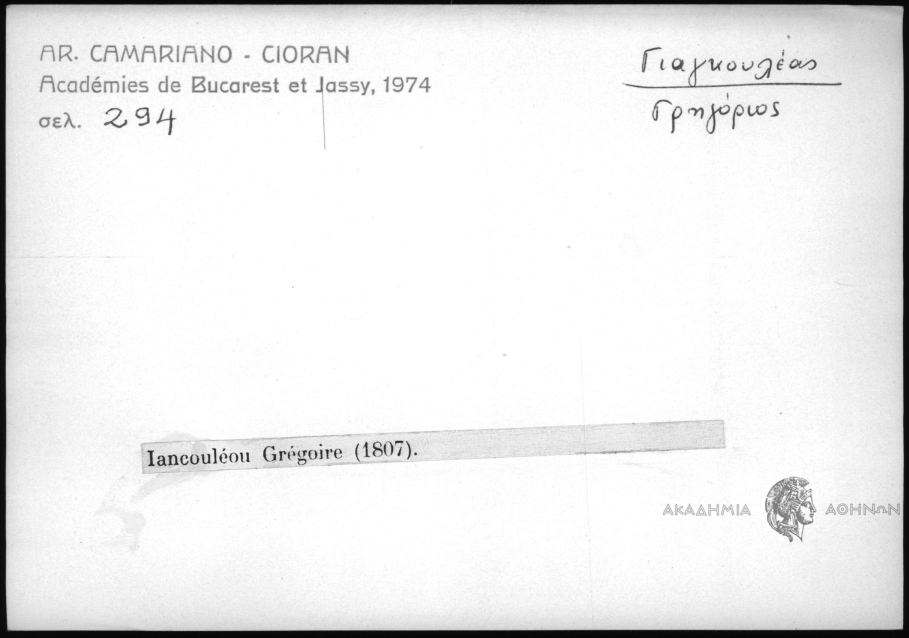 AR. CAMARIANO - CIORAN
Académies de Bucarest et Jassy, 1974
σελ. 294
Γιαγκουλέας
Γρηγόριος
Iancouléou Grégoire (1807).
ΑΚΑΔΗΜΙΑ ΑΘΗΝΩΝ